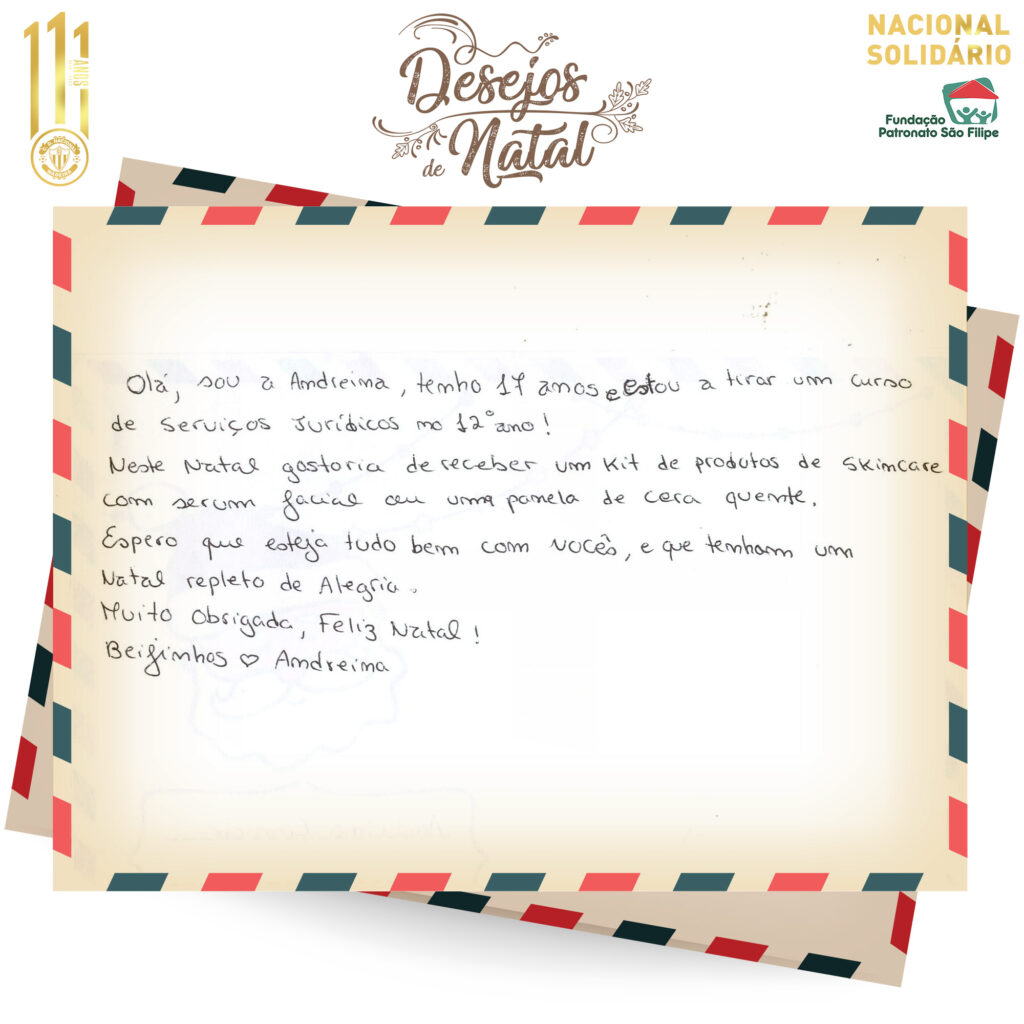 111
ANOS
Desejos
de Natal
NACIONAL
SOLIDÁRIO
Fundação
Patronato São Filipe
Olá, sou a Andreina, tenho 17 anos e estou a tirar um curso
de Serviços Jurídicos no 12º ano!
Neste Natal gostaria de receber um Kit de produtos de skincare
com serum facial ou uma panela de cera quente.
Espero que esteja tudo bem com vocês, e que tenham um
Natal repleto de Alegria.
Muito Obrigada, Feliz Natal!
Beijinhos ♡ Andreina